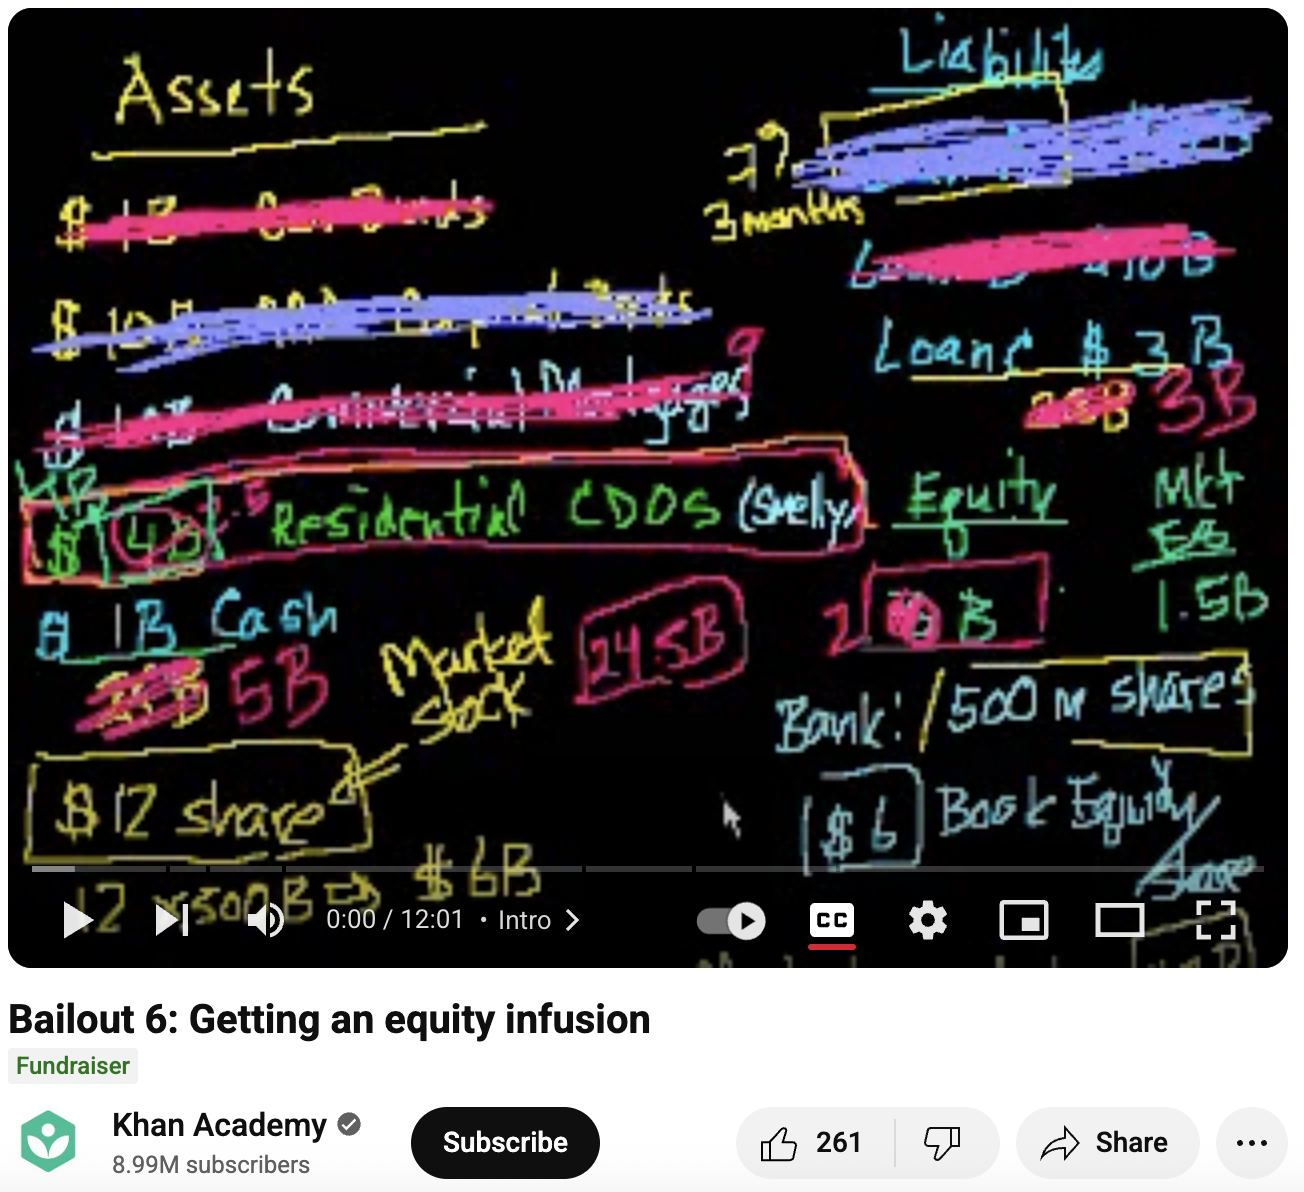 Assets
Liability
3 months
Loan C $ 3 B
3B
4B
$ 4B .5 Residential CDOS (Smelly)
Equity
Mkt
1.5B
1B Cash
5B
Market
Stock
24.5B
2 B
Bank: / 500 M shares
$12 share
$6 Book Equity
Share
12 x 500 $6B
0:00 / 12:01 • Intro
CC
Bailout 6: Getting an equity infusion
Fundraiser
Khan Academy
8.99M subscribers
Subscribe
261
Share